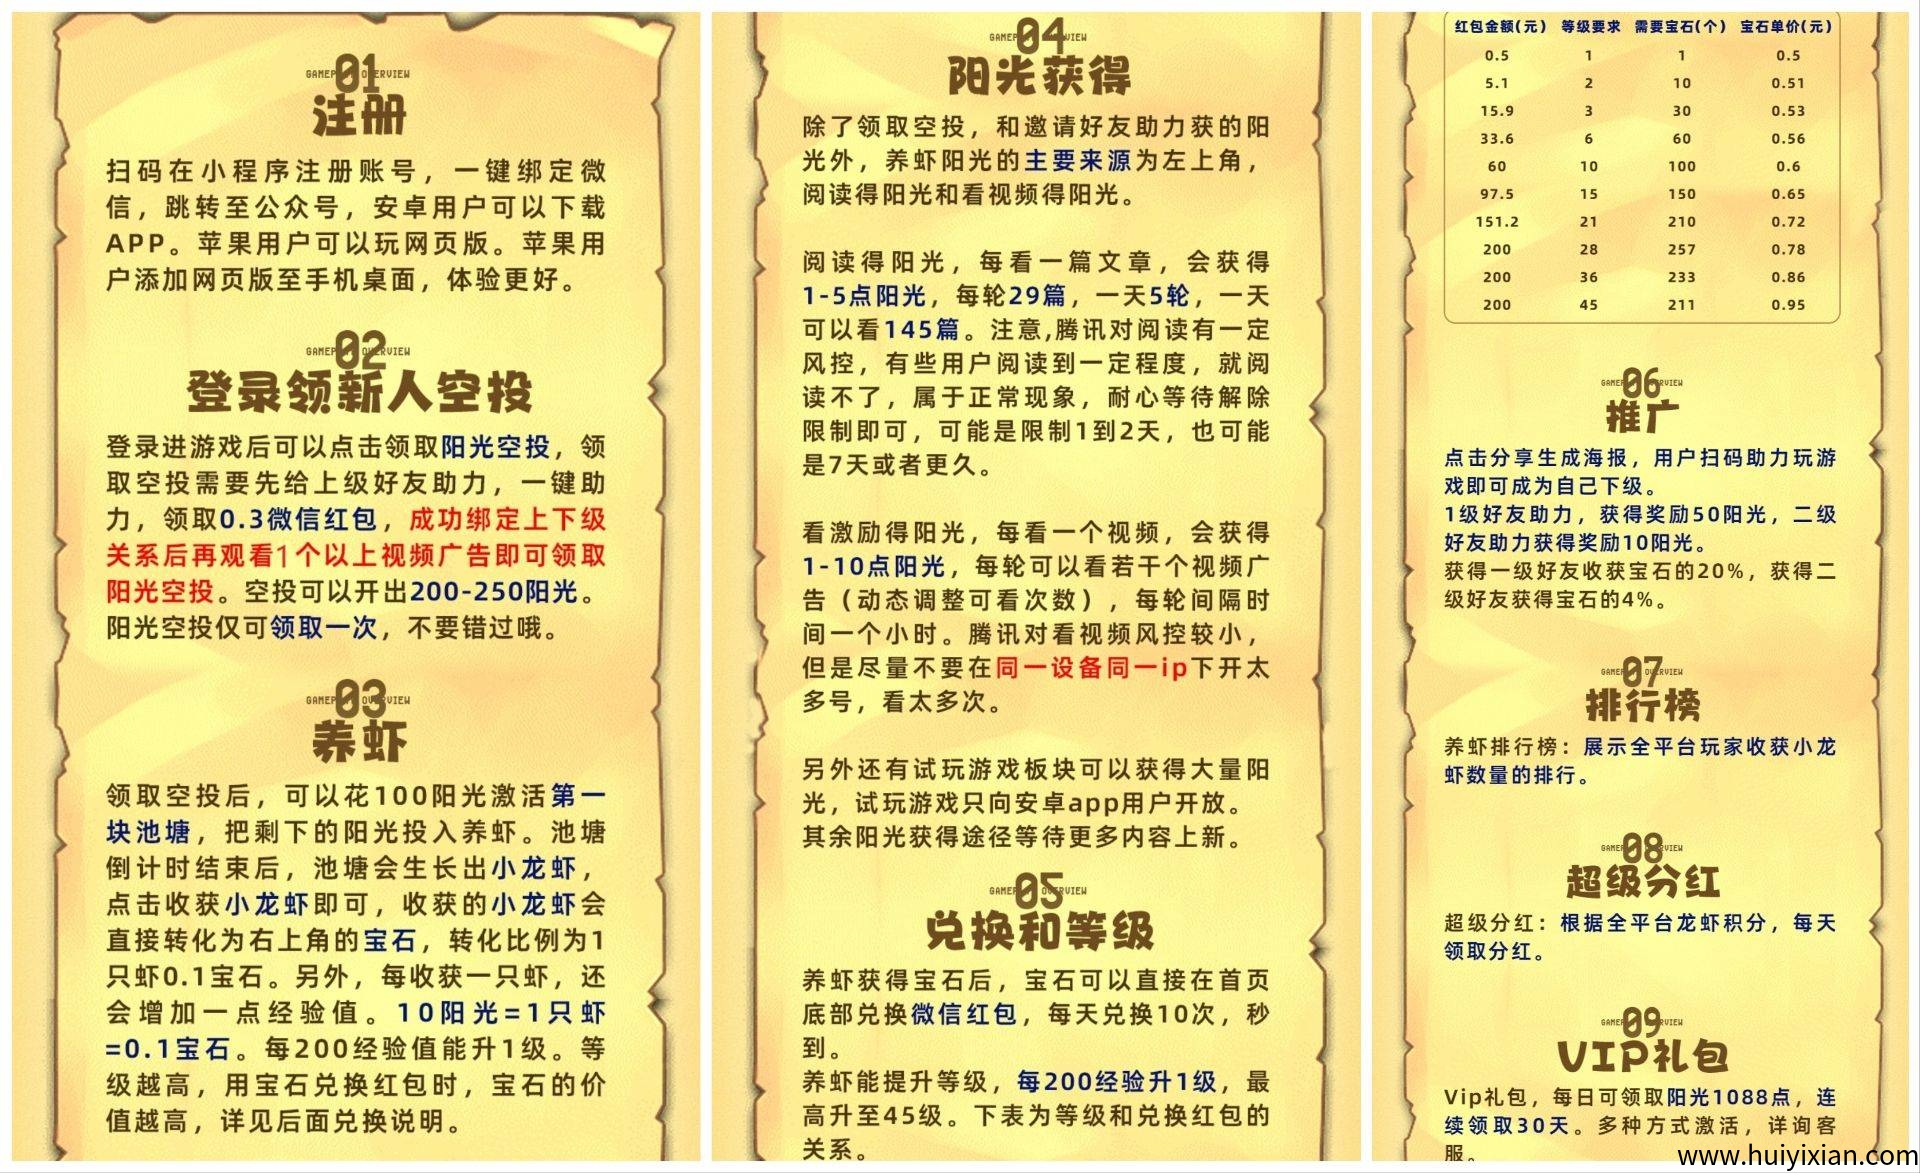 01
GAMEPLAY OVERVIEW
注册
扫码在小程序注册账号，一键绑定微
信，跳转至公众号，安卓用户可以下载
APP。苹果用户可以玩网页版。苹果用
户添加网页版至手机桌面，体验更好。
02
GAMEPLAY OVERVIEW
登录领新人空投
登录进游戏后可以点击领取阳光空投，领
取空投需要先给上级好友助力，一键助
力，领取0.3微信红包，成功绑定上下级
关系后再观看1个以上视频广告即可领取
阳光空投。空投可以开出200-250阳光。
阳光空投仅可领取一次，不要错过哦。
03
GAMEPLAY OVERVIEW
养虾
领取空投后，可以花100阳光激活第一
块池塘，把剩下的阳光投入养虾。池塘
倒计时结束后，池塘会生长出小龙虾，
点击收获小龙虾即可，收获的小龙虾会
直接转化为右上角的宝石，转化比例为1
只虾0.1宝石。另外，每收获一只虾，还
会增加一点经验值。10阳光=1只虾
=0.1宝石。每200经验值能升1级。等
级越高，用宝石兑换红包时，宝石的价
值越高，详见后面兑换说明。
04
GAMEPLAY OVERVIEW
阳光获得
除了领取空投，和邀请好友助力获的阳
光外，养虾阳光的主要来源为左上角，
阅读得阳光和看视频得阳光。
阅读得阳光，每看一篇文章，会获得
1-5点阳光，每轮29篇，一天5轮，一天
可以看145篇。注意,腾讯对阅读有一定
风控，有些用户阅读到一定程度，就阅
读不了，属于正常现象，耐心等待解除
限制即可，可能是限制1到2天，也可能
是7天或者更久。
看激励得阳光，每看一个视频，会获得
1-10点阳光，每轮可以看若干个视频广
告（动态调整可看次数），每轮间隔时
间一个小时。腾讯对看视频风控较小，
但是尽量不要在同一设备同一ip下开太
多号，看太多次。
另外还有试玩游戏板块可以获得大量阳
光，试玩游戏只向安卓app用户开放。
其余阳光获得途径等待更多内容上新。
05
GAMEPLAY OVERVIEW
兑换和等级
养虾获得宝石后，宝石可以直接在首页
底部兑换微信红包，每天兑换10次，秒
到。
养虾能提升等级，每200经验升1级，最
高升至45级。下表为等级和兑换红包的
关系。
红包金额(元) 等级要求 需要宝石(个) 宝石单价(元)
0.5 1 1 0.5
5.1 2 10 0.51
15.9 3 30 0.53
33.6 6 60 0.56
60 10 100 0.6
97.5 15 150 0.65
151.2 21 210 0.72
200 28 257 0.78
200 36 233 0.86
200 45 211 0.95
06
GAMEPLAY OVERVIEW
推广
点击分享生成海报，用户扫码助力玩游
戏即可成为自己下级。
1级好友助力，获得奖励50阳光，二级
好友助力获得奖励10阳光。
获得一级好友收获宝石的20%，获得二
级好友获得宝石的4%。
07
GAMEPLAY OVERVIEW
排行榜
养虾排行榜：展示全平台玩家收获小龙
虾数量的排行。
08
GAMEPLAY OVERVIEW
超级分红
超级分红：根据全平台龙虾积分，每天
领取分红。
09
GAMEPLAY OVERVIEW
VIP礼包
Vip礼包，每日可领取阳光1088点，连
续领取30天。多种方式激活，详询客
服。
www.huiyixian.com